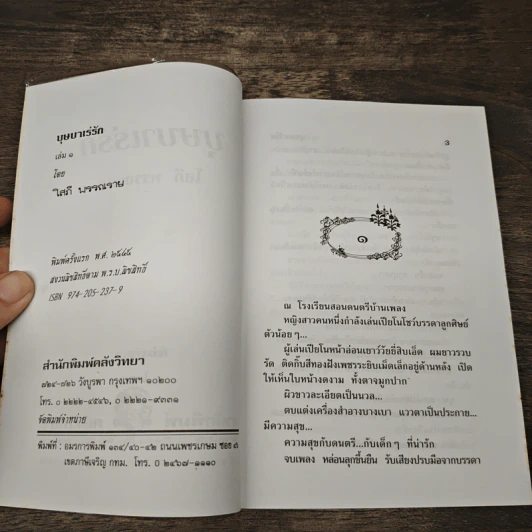 บุษบาเร่รัก
เล่ม ๑
โดย
โสภี พรรณราย
พิมพ์ครั้งแรก พ.ศ. ๒๕๔๕
สงวนลิขสิทธิ์ตาม พ.ร.บ.ลิขสิทธิ์
ISBN 974-205-237-9
สำนักพิมพ์คลังวิทยา
๗๒๔-๗๒๖ วังบูรพา กรุงเทพฯ ๑๐๒๐๐
โทร. ๐ ๒๒๒๒-๔๕๔๖, ๐ ๒๒๒๑-๙๓๓๑
จัดพิมพ์จำหน่าย
พิมพ์ที่ : อมรการพิมพ์ ๑๓๔/๔๐-๔๒ ถนนเพชรเกษม ซอย
เขตภาษีเจริญ กทม. โทร. ๐ ๒๔๖๗-๑๑๑๐
๓
๑
ณ โรงเรียนสอนดนตรีบ้านเพลง
หญิงสาวคนหนึ่งกำลังเล่นเปียโนโชว์บรรดาลูกศิษย์
ตัวน้อยๆ...
ผู้เล่นเปียโนหน้าอ่อนเยาว์วัยยี่สิบเอ็ด ผมยาวรวบ
รัด ติดกิ๊บสีทองฝังเพชรระยิบเม็ดเล็กอยู่ด้านหลัง เปิด
ให้เห็นใบหน้างดงาม ทั้งตาจมูกปาก
ผิวขาวละเอียดเป็นนวล...
ตบแต่งเครื่องสำอางบางเบา แววตาเป็นประกาย...
มีความสุข...
ความสุขกับดนตรี...กับเด็กๆ ที่น่ารัก
จบเพลง หล่อนลุกขึ้นยืน รับเสียงปรบมือจากบรรดา